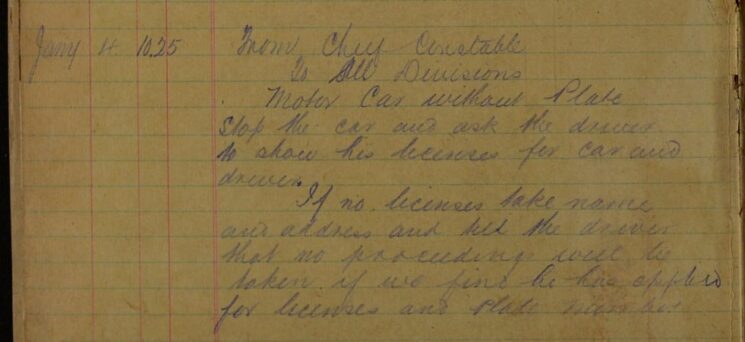 Jany 4 10.25 From Chief Constable
To All Divisions
Motor Car without Plate
Stop the car and ask the driver
to show his licenses for car and
driver.
If no licenses take name
and address and tell the driver
that no proceedings will be
taken if we find he has applied
for licenses and Plate number